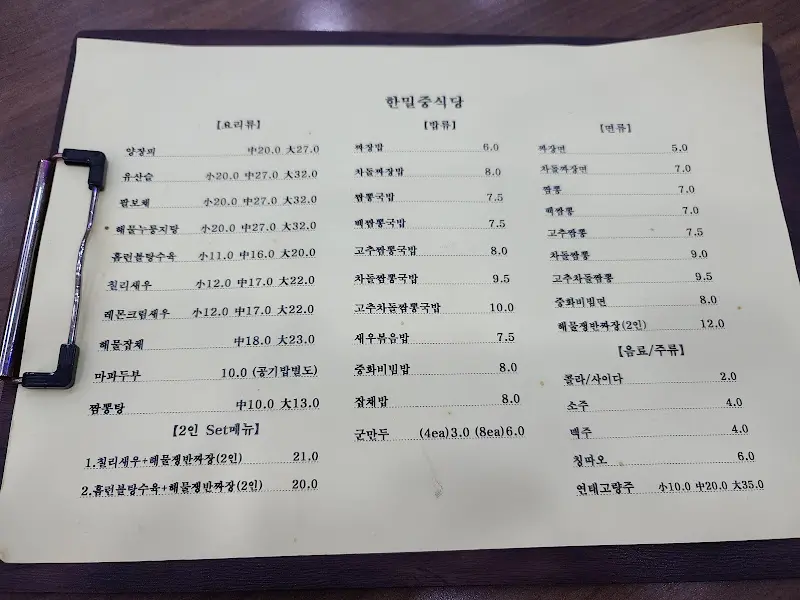 한밀중식당
【요리류】
양장피 中20.0 大27.0
유산슬 小20.0 中27.0 大32.0
팔보채 小20.0 中27.0 大32.0
해물누룽지탕 小20.0 中27.0 大32.0
홀린불탕수육 小11.0 中16.0 大20.0
칠리새우 小12.0 中17.0 大22.0
레몬크림새우 小12.0 中17.0 大22.0
해물잡채 中18.0 大23.0
마파두부 10.0 (공기밥별도)
짬뽕탕 中10.0 大13.0
【2인 Set메뉴】
1.칠리새우+해물쟁반짜장(2인) 21.0
2.홀린불탕수육+해물쟁반짜장(2인) 20.0
【밥류】
짜장밥 6.0
차돌짜장밥 8.0
짬뽕국밥 7.5
백짬뽕국밥 7.5
고추짬뽕국밥 8.0
차돌짬뽕국밥 9.5
고추차돌짬뽕국밥 10.0
새우볶음밥 7.5
중화비빔밥 8.0
잡채밥 8.0
군만두 (4ea)3.0 (8ea)6.0
【면류】
짜장면 5.0
차돌짜장면 7.0
짬뽕 7.0
백짬뽕 7.0
고추짬뽕 7.5
차돌짬뽕 9.0
고추차돌짬뽕 9.5
중화비빔면 8.0
해물쟁반짜장(2인) 12.0
【음료/주류】
콜라/사이다 2.0
소주 4.0
맥주 4.0
칭따오 6.0
연태고량주 小10.0 中20.0 大35.0